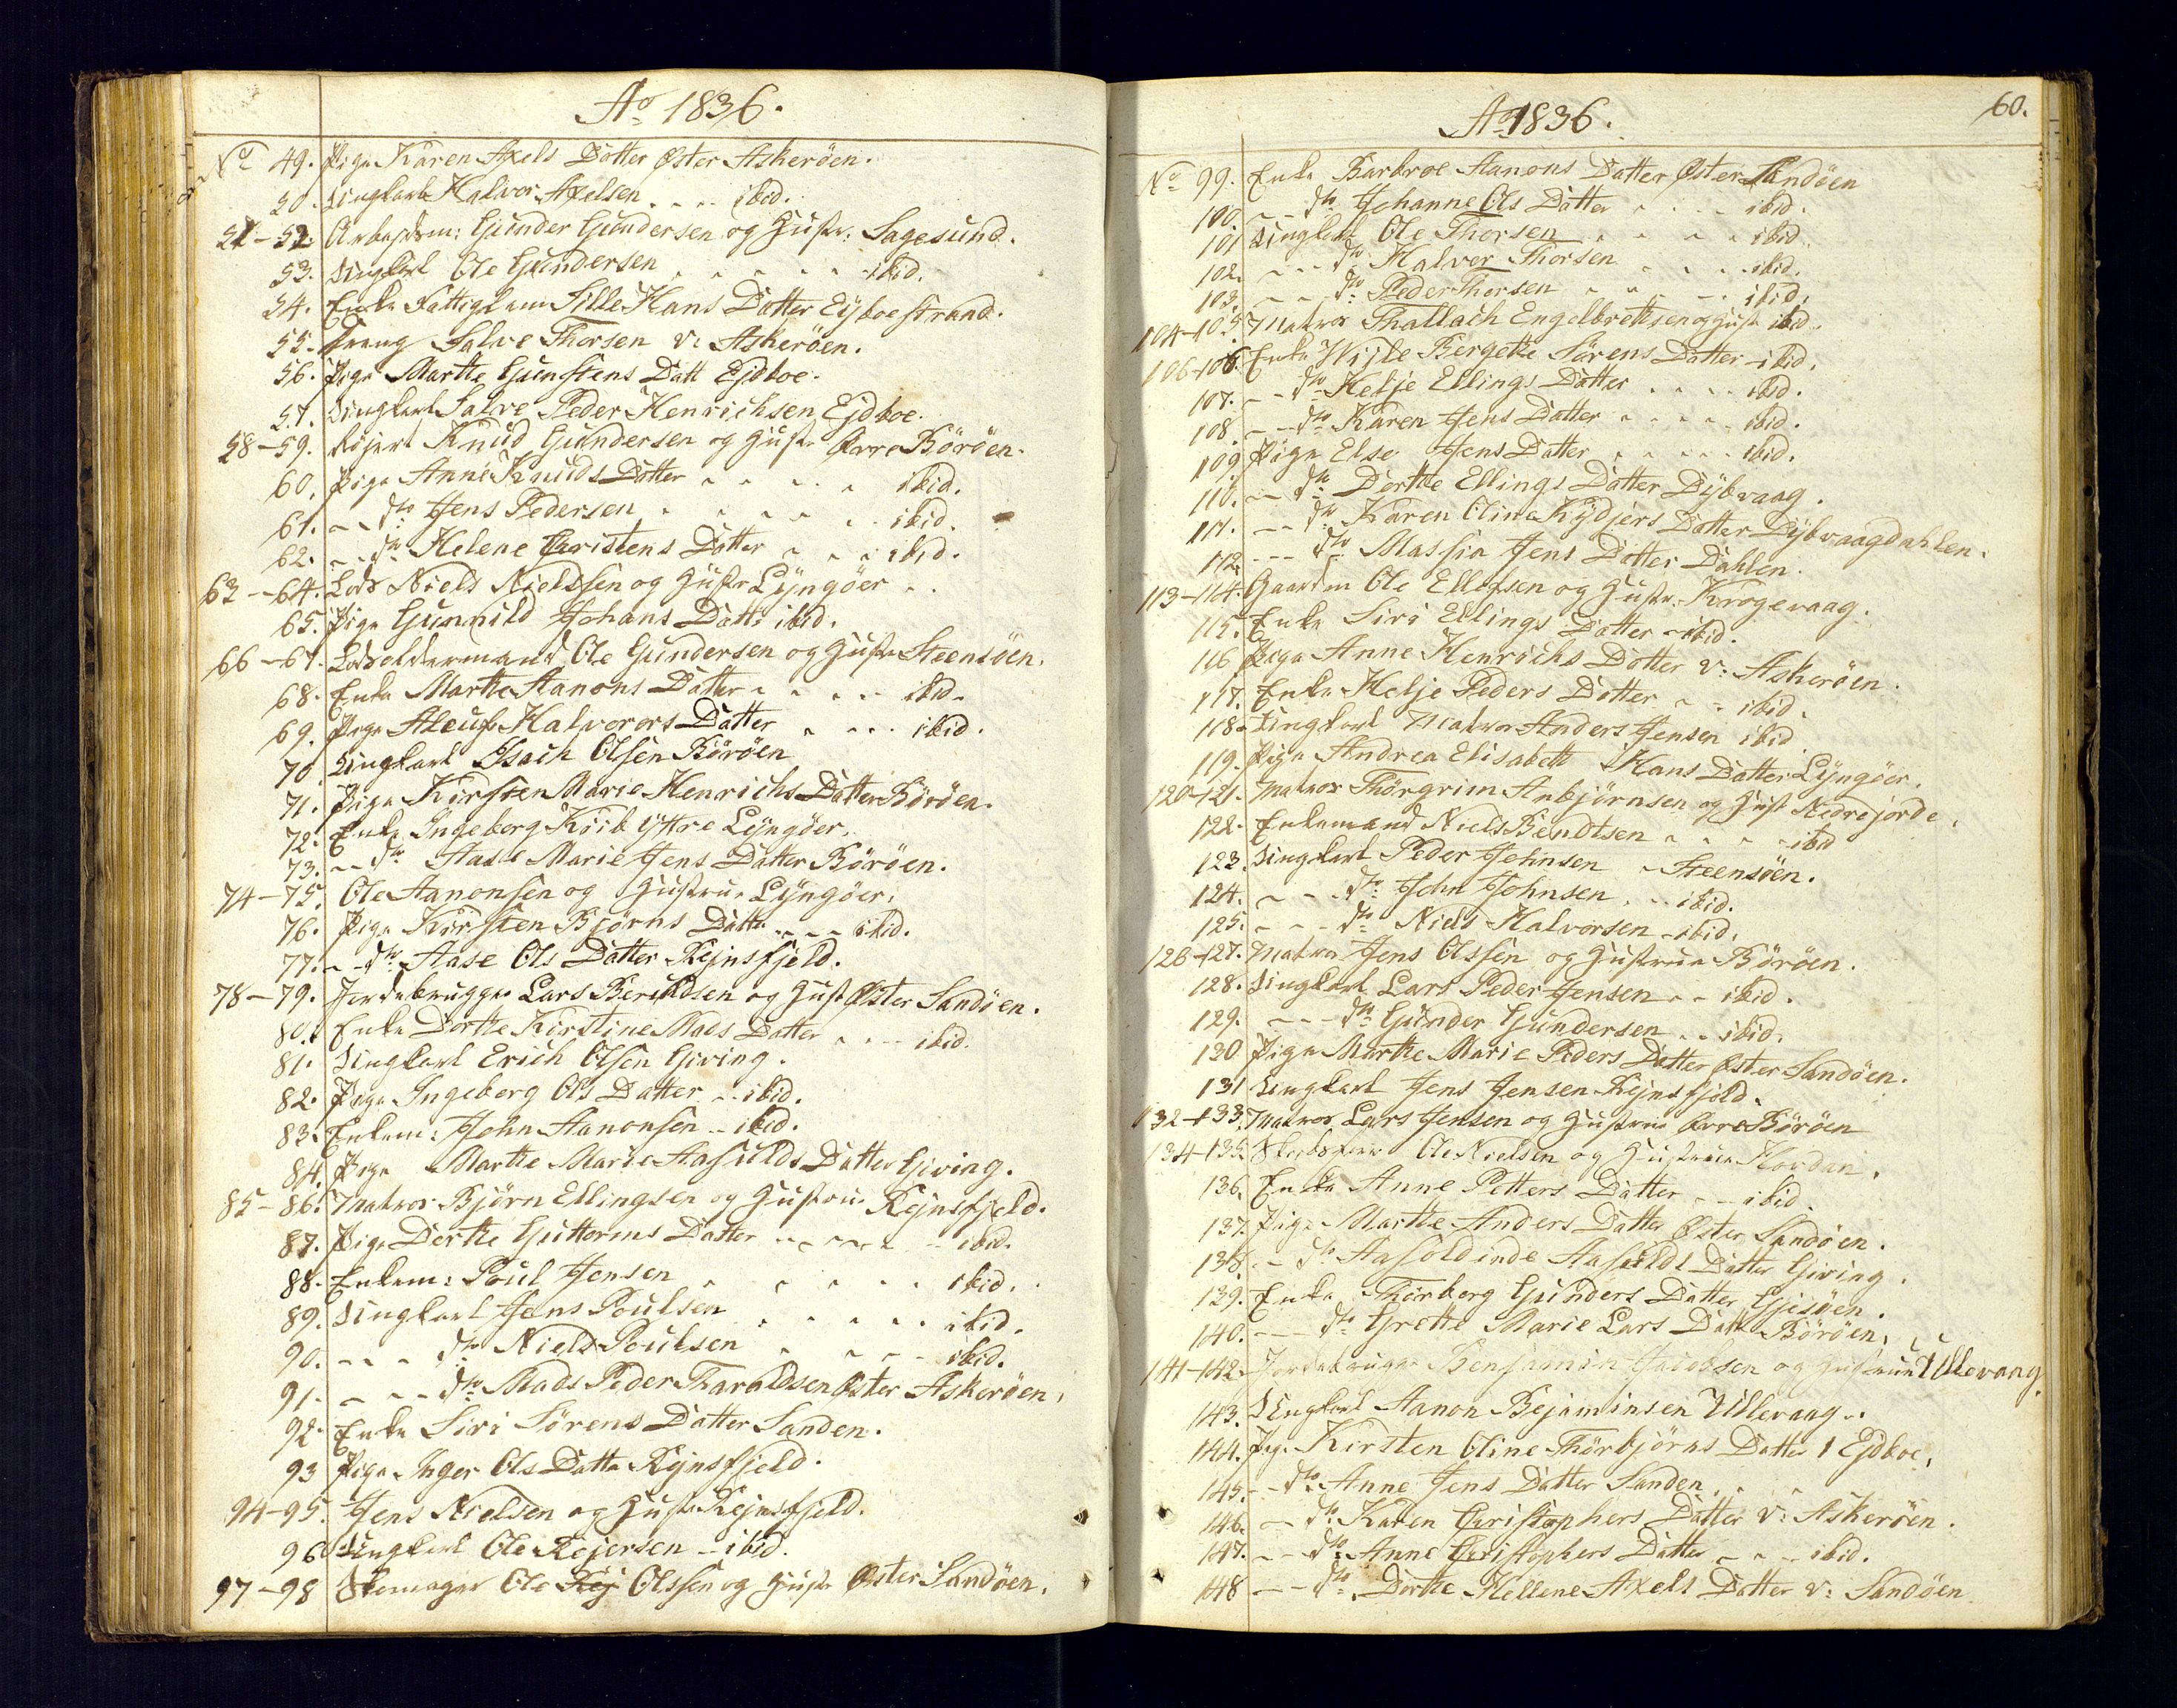 Ao 1836.
No 49. Pige Karen Axels Datter Øster Askerøen.
50. Ungkarl Halvor Axelsen .... ibid.
51-52. Arbejdsm: Gunder Gundersen og Hustr: Sagesund.
53. Ungkarl Ole Gundersen ..... ibid.
54. Enke Fattiglem Sille Hans Datter Eijboestrand.
55. Dreng Salve Thorsen v. Askerøen.
56. Pige Marthe Gunstens Datt Ejdboe.
57. Ungkarl Salve Peder Henrichsen Ejdboe.
58-59. Rejert Knud Gundersen og Hustr Øvre Börøen.
60. Pige Anne Knuds Datter .... ibid.
61. -- dto Jens Pedersen ..... ibid.
62. -- dto Helene Christens Datter .... ibid.
63-64. Lods Niels Nielssen og Hustr Lyngöer ..
65. Pige Gunnild Johans Datt: ibid.
66-67. Lodsoldermand Ole Gundersen og Hustr Steensøen.
68. Enke Marthe Aanons Datter .... ibid.
69. Pige Aleuf Halvors Datter .... ibid.
70. Ungkarl Isach Olsen Börøen
71. Pige Kirsten Marie Henrichs Datter Börøen.
72. Enke Ingeborg Koib Yttre Lyngöer.
73. -- dto Aase Marie Jens Datter Börøen.
74-75. Ole Aanonsen og Hustrue Lyngöer.
76. Pige Kirsten Bjørns Datter .... ibid.
77. -- dto Aase Ols Datter Rejnsfjeld.
78-79. Jordebrugger Lars Berildsen og Hust Øster Sandøen.
80. Enke Dorthe Kirstine Mads Datter .... ibid.
81. Ungkarl Erich Olsen Giving.
82. Pige Ingeborg Ols Datter .. ibid.
83. Enkem: John Aanonsen .. ibid.
84. Pige Marthe Marie Aasulds Datter Giving.
85-86. Matros Björn Ellingsen og Hustrue Rejnsfjeld.
87. Pige Dorthe Guttorms Datter .... ibid.
88. Enkem: Poul Jensen ..... ibid.
89. Ungkarl Jens Poulsen ..... ibid.
90. --- dto Niels Poulsen .... ibid.
91. --- dto Mads Peder Tharaldsen Øster Askerøen.
92. Enke Siri Sörens Datter Sanden.
93 Pige Inger Ols Datter Rejnsfjeld.
94-95. Jens Nielsen og Hustr Rejnsfjeld.
96 Ungkarl Ole Rejersen .. ibid.
97-98 Skomager Ole Rej Olssen og Hustr Øster Sandøen.
60.
Ao 1836.
No 99. Enke Barbroe Aanons Datter Øster Sandöen
100. -- dto Johanne Ols Datter .... ibid.
101 Ungkarl Ole Thorsen .... ibid
102. --- dto Halvor Thorsen .... ibid.
103. --- dto Peder Thorsen .... ibid.
104-105. Matros Thallach Engelbrethsen og Hust ibid.
106-106. Enke Wijle Bergethe Sörens Datter - ibid.
107. -- dto Helje Ellings Datter .... ibid.
108. -- dto Karen Jens Datter .... ibid.
109 Pige Else Jens Datter ..... ibid.
110. -- dto Dorthe Ellings Datter Dÿbvaag.
111. -- dto Karen Oline Rejers Datter Dÿbvaagdahlen.
112. --- dto Massia Jens Datter Dahlen.
113-114. Gaardm Ole Ellefsen og Hustr. Krogevaag.
115. Enke Siri Ellings Datter - ibid.
116 Pige Anne Henrichs Datter v: Askerøen.
117. Enke Helje Peders Datter .. ibid.
118. Ungkarl Matros Anders Jensen ibid
119. Pige Andrea Elisabeth Hans Datter Lÿngöer.
120-121. Matros Thorgrim Anbjörnsen og Hust Nedrejorde.
122. Enkemand Niels Bendtsen .... ibid
123. Ungkarl Peder Johnsen - Steensøen.
124. --- dto John Johnsen ... ibid.
125. --- dto Niels Halvorsen - ibid.
126-127. Matros Jens Olssen og Hustrue Börøen.
128. Ungkarl Lars Peder Jensen .. ibid.
129. --- dto Gunder Gundersen .. ibid.
130 Pige Marthe Marie Peders Datter Øster Sandøen.
131 Ungkarl Jens Jensen Rejnsfjeld.
132-133. Matros Lars Jensen og Hustrue Øvre Börøen
134-135. Skibsfører Ole Nielsen og Hustrue Hordan.
136. Enke Anne Petters Datter .. ibid.
137. Pige Marthe Anders Datter Øster Sandøen.
138. -- dto Aasoldinde Aasulds Datter Giving.
139. Enke Thorborg Gunders Datter Gjesøen.
140. --- dto Grethe Marie Lars Datt Börøen.
141-142. Jordebruger Benjamin Jacobsen og Hustrue Ullevaag
143. Ungkarl Aanon Bejaminsen Ullevaag..
144. Pige Kirsten Oline Thorbjörns Datter i Ejdboe.
145. -- dto Anne Jens Datter Sanden.
146. -- dto Karen Christophers Datter v: Askerøen.
147. -- dto Anne Christophers Datter ... ibid.
148 --- dto Dorthe Hellene Axels Datter v: Sandöen